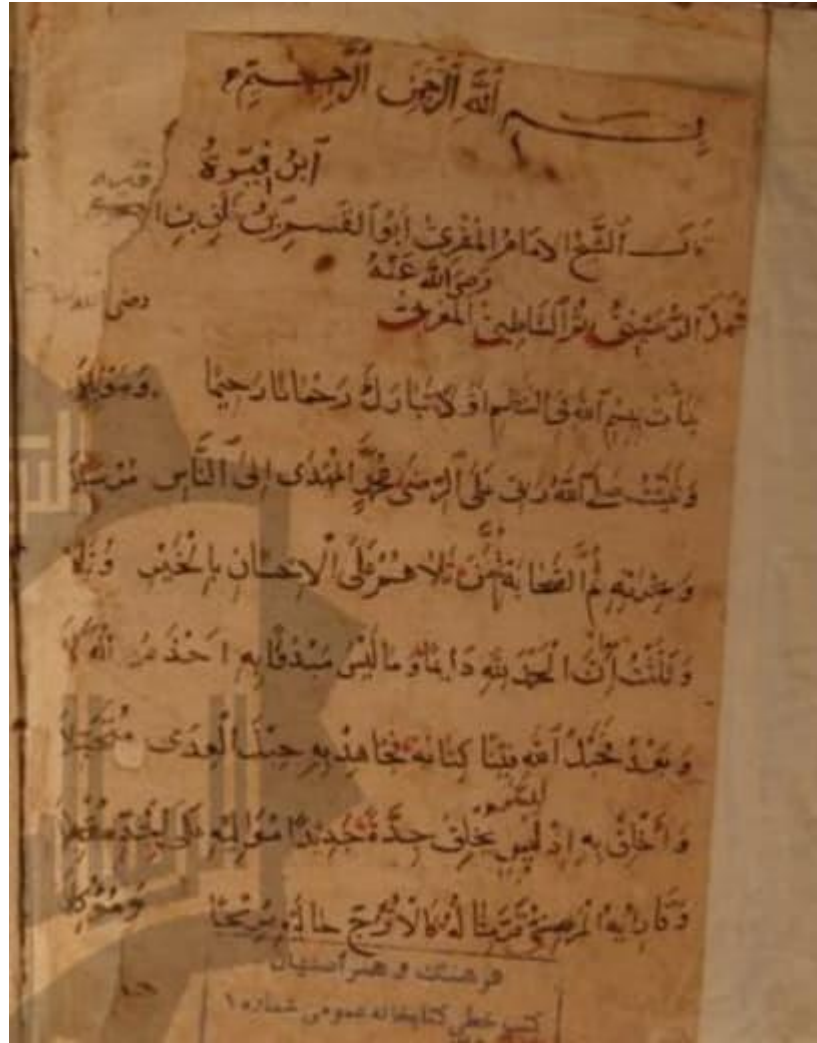 بِسْمِ ٱللَّهِ ٱلرَّحْمَٰنِ ٱلرَّحِيمِ
ٱبن فيرة
قال الشيخ الامام المقرئ ابو القسم بن
رضى الله عنه
رضى الله
الشاطبى المقرئ
بدأت ببسم الله فى النظم اولا تبارك رحمانا رحيما وموئلا
وثنيت صلى الله ربى على الرضى محمد المهدى الى الناس مرسلا
وعترته ثم الصحابة ثم من تلاهم على الاحسان بالخير وبلا
وثلثت أن الحمد لله دائما وما ليس مبدوءا به اجذم العلا
وبعد فحبل الله فينا كتابه فجاهد به حبل العدى متحبلا
وأخلق به اذ ليس يخلق جدة جديدا مواليه على الجد مقبلا
وقارئه المرضى قر مثاله كالاترج حاليه مريحا وموكلا
فرهنك و هنر اصفهان
كتب خطى كتابخانه عمومى شماره ١